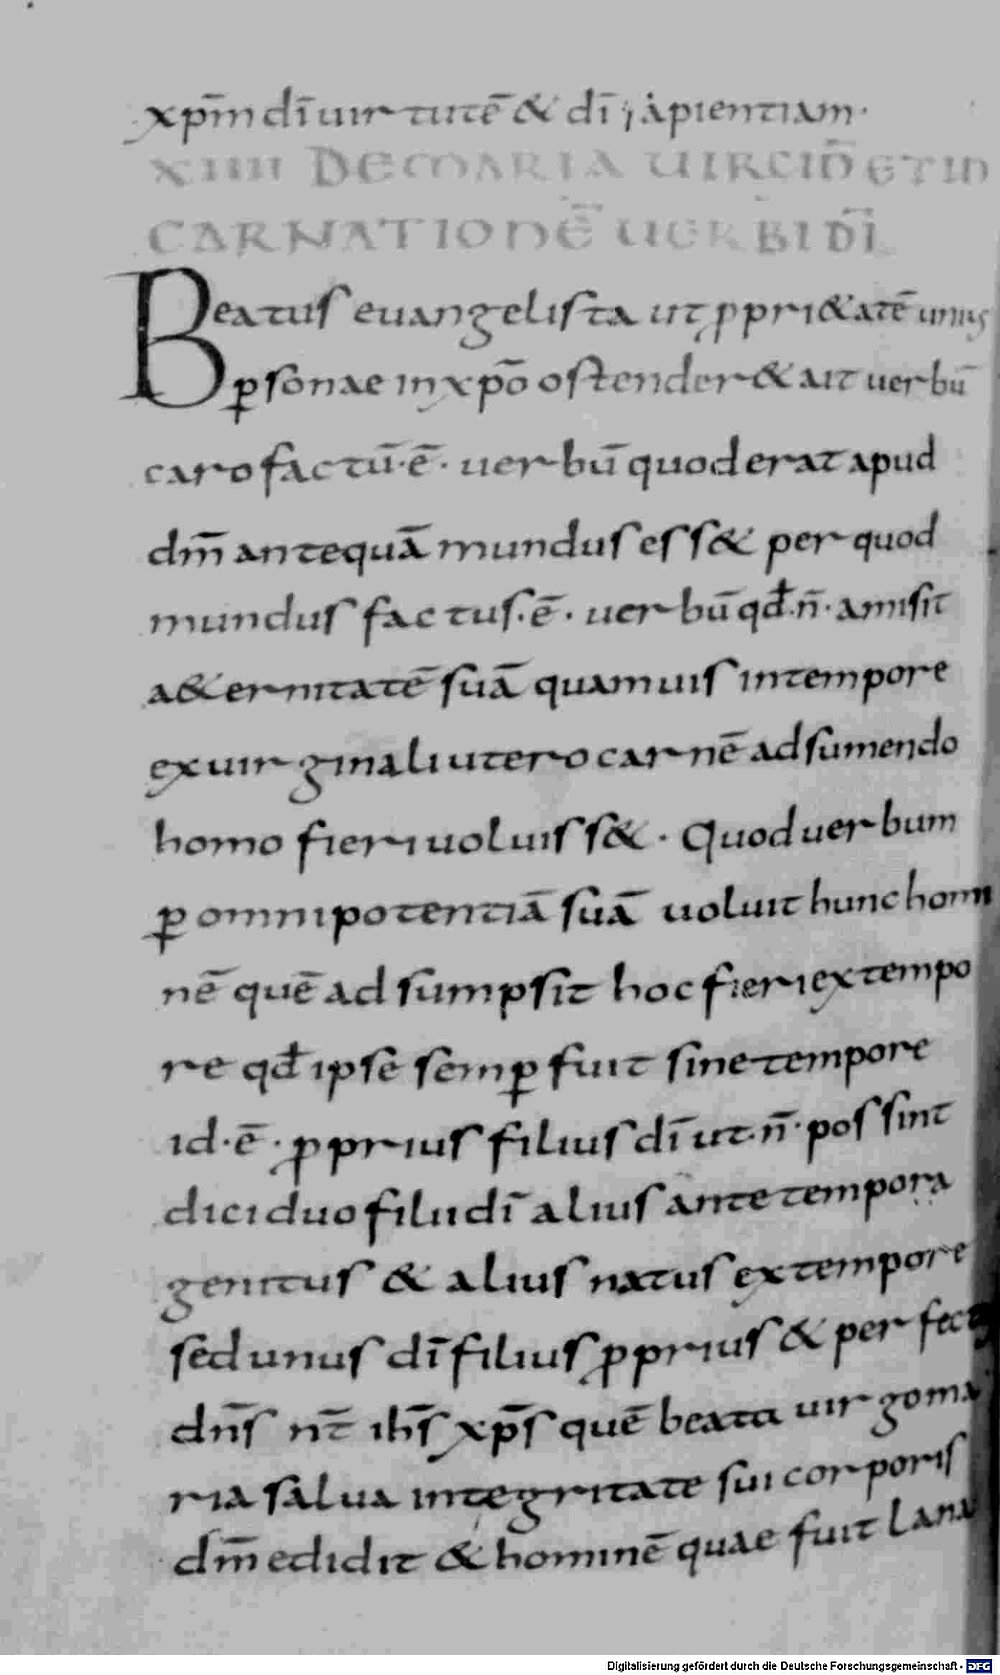 xp̄m dī uirtutē & dī sapientiam·
XIIII DE MARIA UIRGIN̄ ET IN
CARNATIONĒ UERBI DĪ
Beatus euangelista ut ꝓpri&atē unius
ꝑsonae in xpō ostender& ait uerbū
caro factū·ē· uerbū quod erat apud
dm̄ antequā mundus ess& per quod
mundus factus·ē· uerbū qđ·n̄· amisit
a&ernitatē suā quamuis in tempore
ex uirginali utero carnē adsumendo
homo fieri uoluiss&· Quod uerbum
ꝑ omnipotentiā suā uoluit hunc homi
nē quē adsumpsit hoc fieri ex tempo
re qđ ipse semꝑ fuit sine tempore
id·ē· ꝓprius filius dī ut·n̄· possint
dici duo filii dī alius ante tempora
genitus & alius natus ex tempore
sed unus dī filius ꝓprius & perfect
dn̄s nr̄ ih̄s xp̄s quē beata uirgo ma
ria salua integritate sui corporis
dm̄ edidit & hominē quae fuit lana
Digitalisierung gefördert durch die Deutsche Forschungsgemeinschaft - DFG